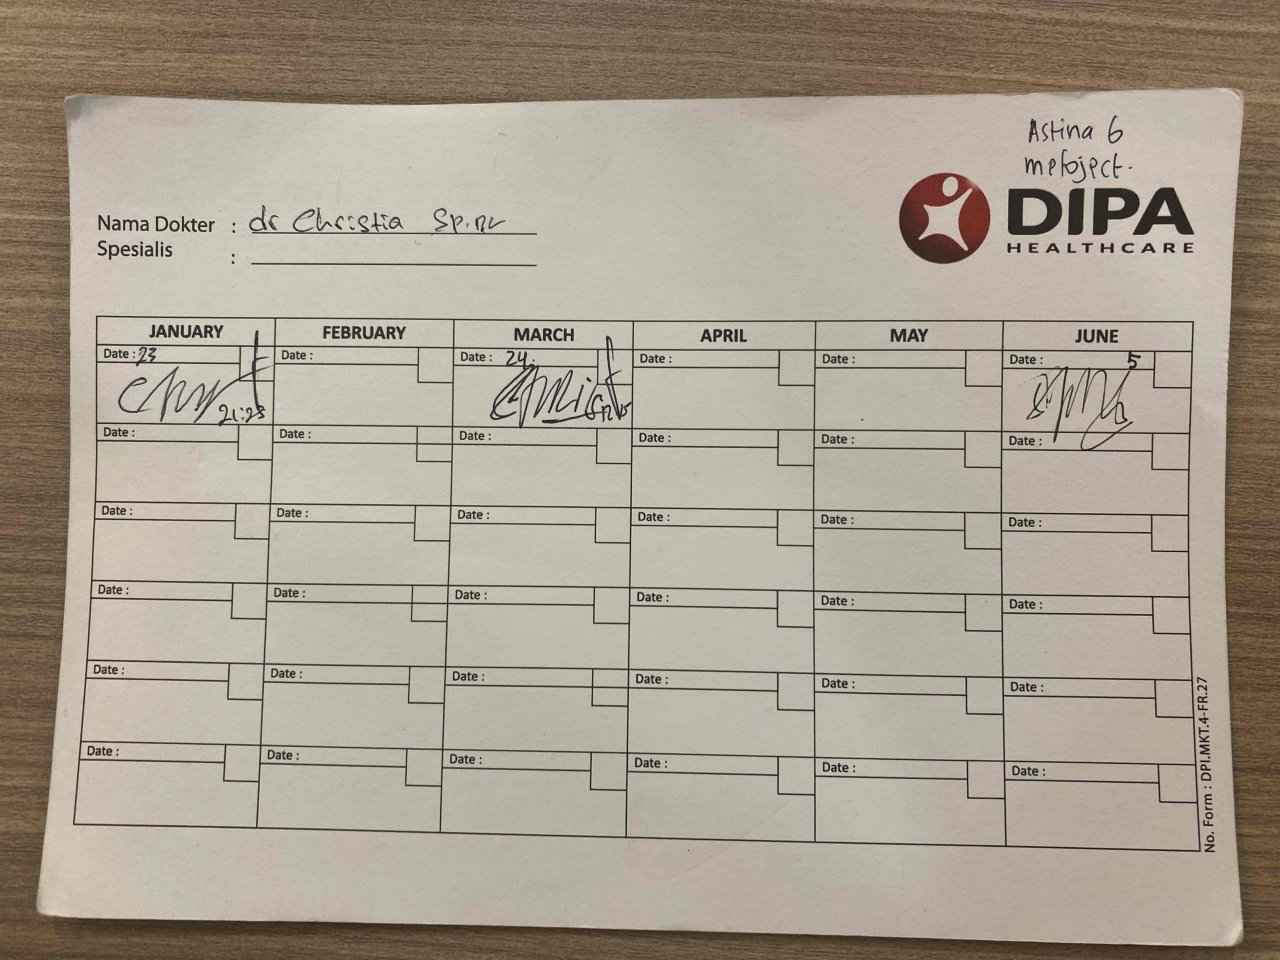 Astina 6
mefoject.
DIPA
HEALTHCARE
Nama Dokter : dr Christia Sp.nr
Spesialis :
JANUARY FEBRUARY MARCH APRIL MAY JUNE
Date : 23 Date : Date : 24. Date : Date : Date : 5
21:23
Date : Date : Date : Date : Date : Date :
Date : Date : Date : Date : Date : Date :
Date : Date : Date : Date : Date : Date :
Date : Date : Date : Date : Date : Date :
Date : Date : Date : Date : Date : Date :
No. Form : DPI.MKT.4-FR.27